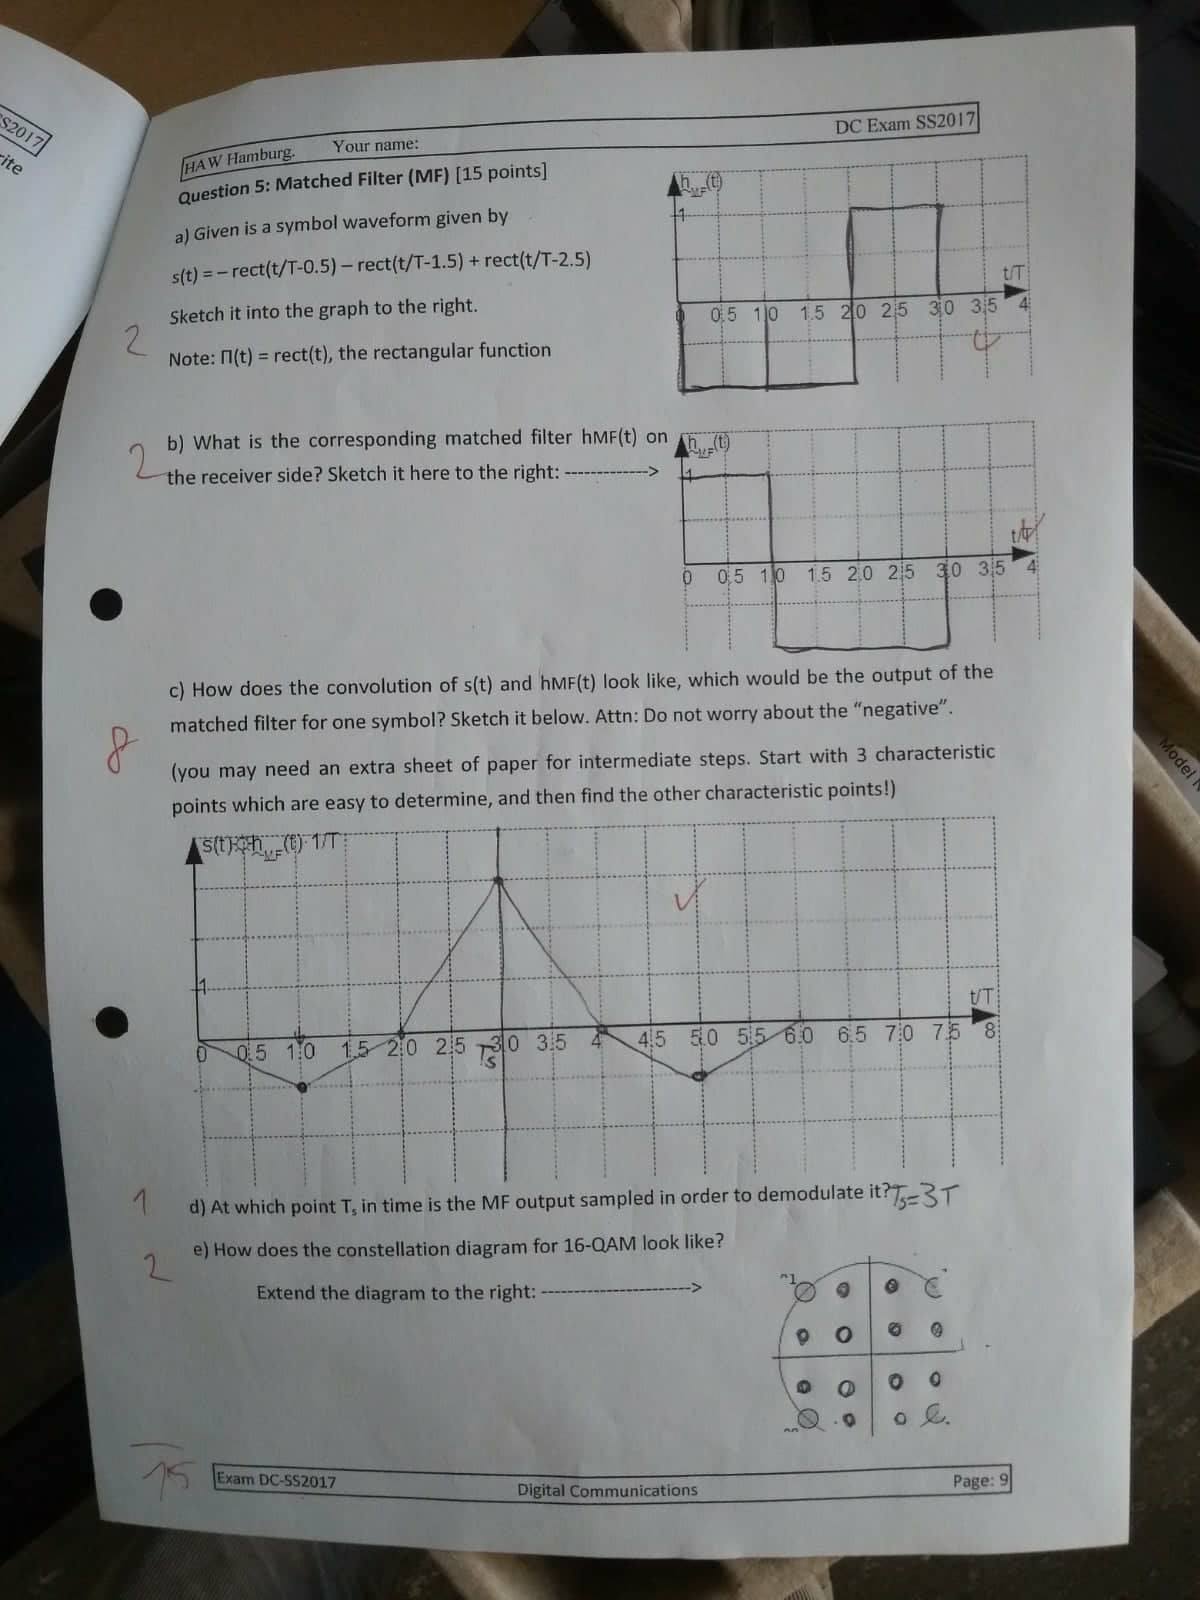 SS2017
rite
HAW Hamburg. Your name: DC Exam SS2017
Question 5: Matched Filter (MF) [15 points]
a) Given is a symbol waveform given by
s(t) = – rect(t/T-0.5) – rect(t/T-1.5) + rect(t/T-2.5)
Sketch it into the graph to the right.
2
Note: Π(t) = rect(t), the rectangular function
h_MF(t)
1
t/T
0 0.5 1.0 1.5 2.0 2.5 3.0 3.5 4
b) What is the corresponding matched filter hMF(t) on
2
the receiver side? Sketch it here to the right: ------------->
h_MF(t)
1
t/T
0 0.5 1.0 1.5 2.0 2.5 3.0 3.5 4
c) How does the convolution of s(t) and hMF(t) look like, which would be the output of the
matched filter for one symbol? Sketch it below. Attn: Do not worry about the “negative”.
8
(you may need an extra sheet of paper for intermediate steps. Start with 3 characteristic
points which are easy to determine, and then find the other characteristic points!)
s(t)*h_MF(t)·1/T
1
t/T
0 0.5 1.0 1.5 2.0 2.5 3.0 3.5 4 4.5 5.0 5.5 6.0 6.5 7.0 7.5 8
Ts
1
d) At which point Ts in time is the MF output sampled in order to demodulate it? Ts=3T
e) How does the constellation diagram for 16-QAM look like?
2
Extend the diagram to the right: ----------------------->
15
Exam DC-SS2017 Digital Communications Page: 9
Model